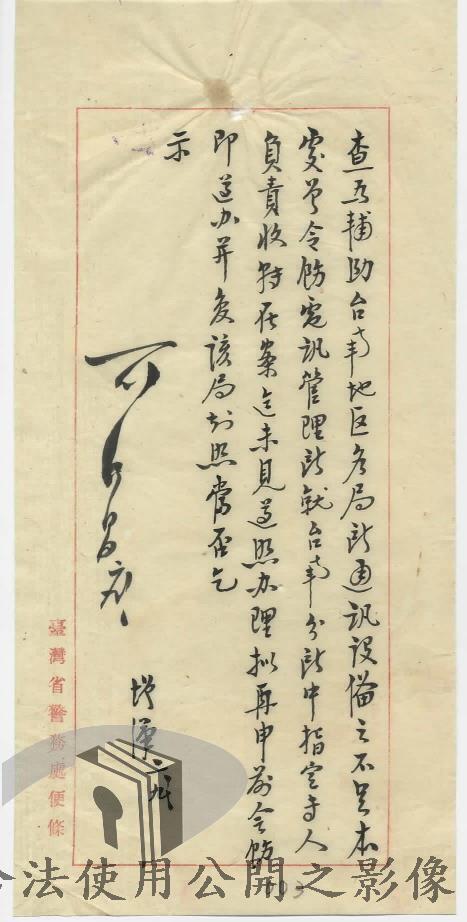 查為輔助台南地区各局所通訊設備之不足本
處曾令飭電訊管理所就台南分所中指定專人
負責收轉在案迄未見遵照办理擬再申前令飭
即遵办并復該局知照當否乞
示
可
增澤
臺灣省警務處便條
合法使用公開之影像